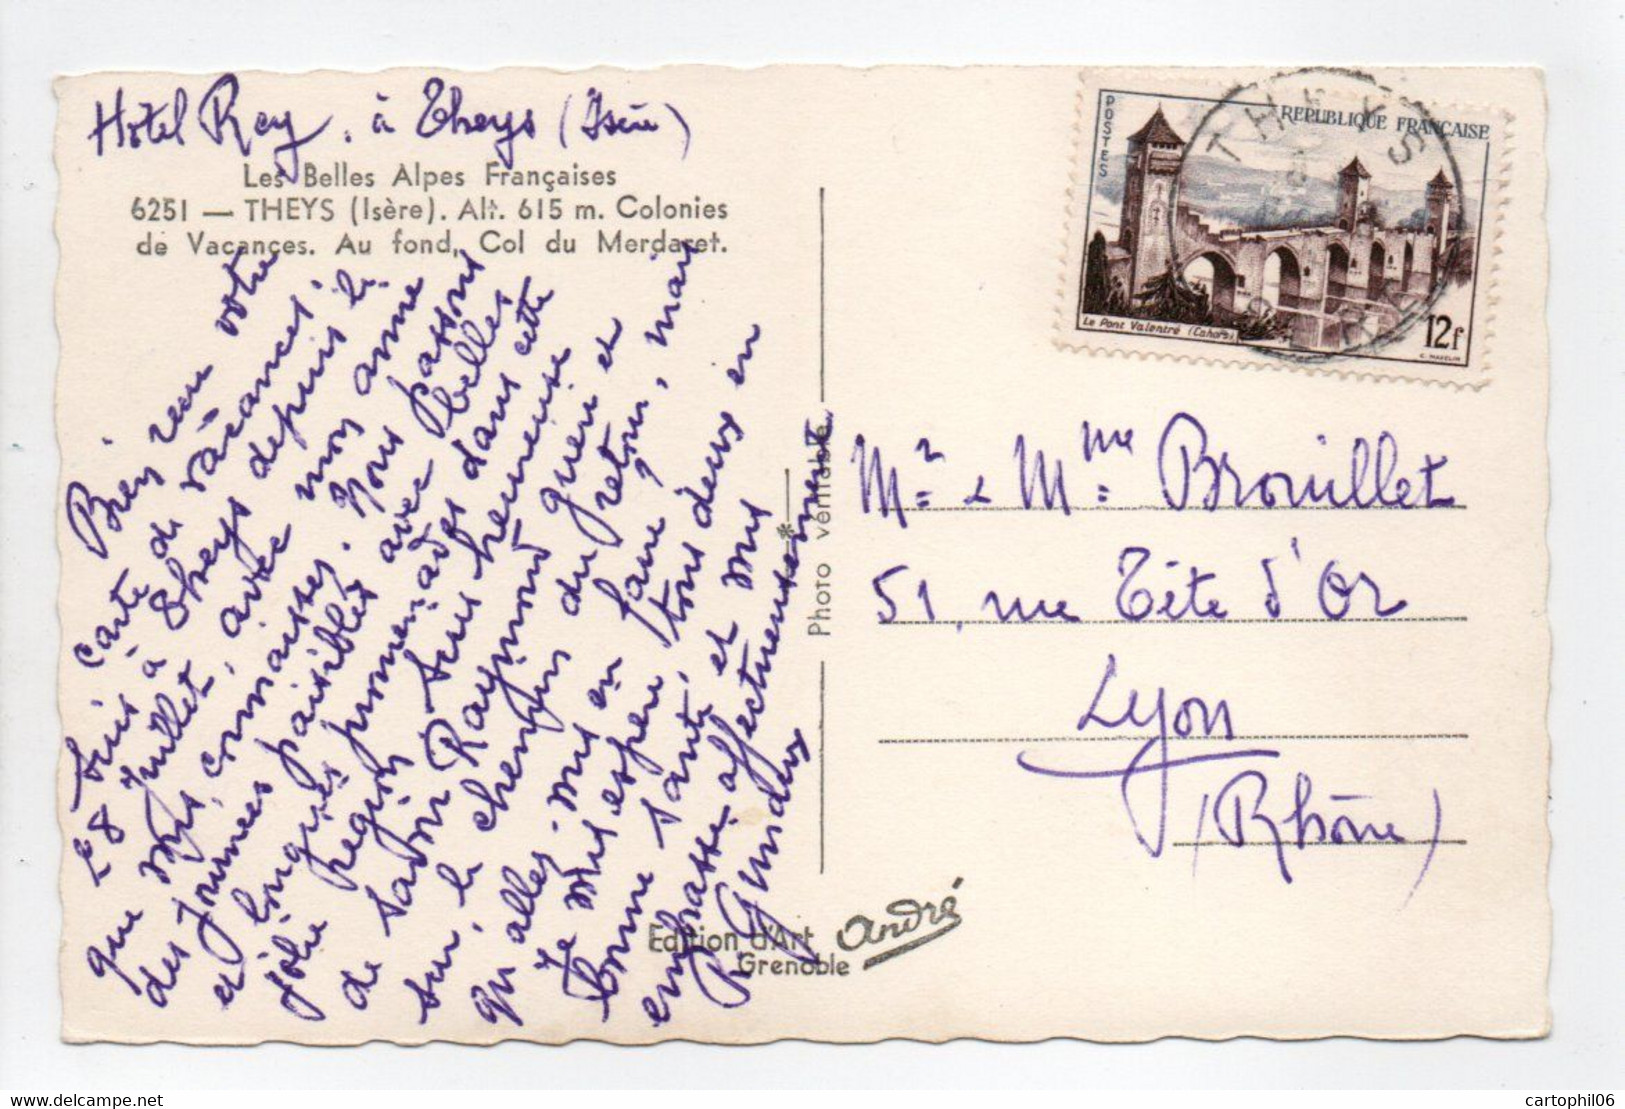 Hôtel Rey, à Theys (Isère)
Les Belles Alpes Françaises
6251 — THEYS (Isère). Alt. 615 m. Colonies
de Vacances. Au fond, Col du Merdaret.
Bien reçu votre
carte de vacances.
Je suis à Theys depuis le
8 Juillet, avec mon amie
que vous connaissez. Nous passons
des journées paisibles avec belles
et longues promenades dans cette
jolie région. Suis heureuse
de savoir Raymond guéri et
sur le chemin du retour, mais
qu'allez-vous en faire ?
Je vous espère tous deux en
bonne santé, et vous
embrasse affectueusement
R. Gundaux
Edition d'Art
Grenoble
André
Photo véritable
POSTES
REPUBLIQUE FRANÇAISE
Le Pont Valentré (Cahors)
12f
THEYS
Mr & Mme Brouillet
51, rue Tête d'Or
Lyon
(Rhône)
cartophil06